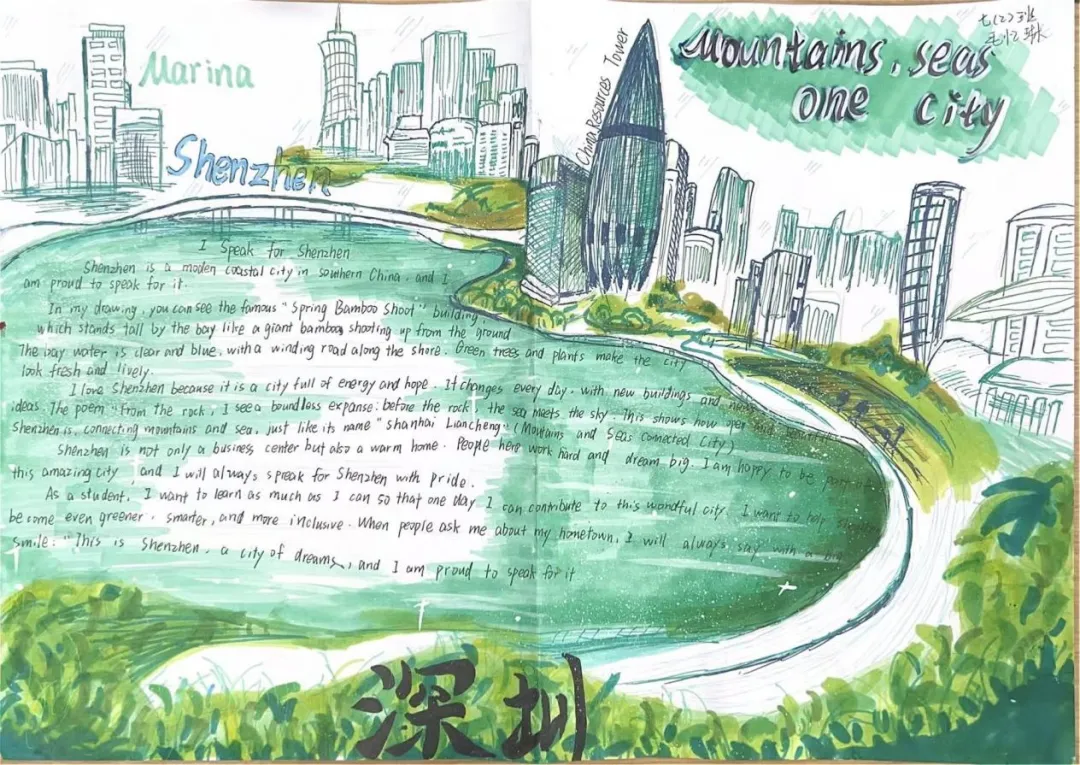 Marina
Shenzhen
China Resources Tower
Mountains, seas
one city
七(2)班
I Speak for Shenzhen
Shenzhen is a moden coastal city in southern China, and I
am proud to speak for it.
In my drawing, you can see the famous "Spring Bamboo Shoot" building
which stands tall by the bay like a giant bamboo shooting up from the ground
The bay water is clear and blue, with a winding road along the shore. Green trees and plants make the city
look fresh and lively.
I love Shenzhen because it is a city full of energy and hope. It changes every day, with new buildings and new
ideas. The poem "from the rock, I see a boundless expanse: before the rock, the sea meets the sky. This shows how open and beautiful
Shenzhen is, connecting mountains and sea, just like its name "Shanhai Liancheng" (Mountains and Seas Connected City)
Shenzhen is not only a business center but also a warm home. People here work hard and dream big. I am happy to be part of
this amazing city, and I will always speak for Shenzhen with pride.
As a student, I want to learn as much as I can so that one day I can contribute to this wondful city. I want to help Shenzhen
become even greener, smarter, and more inclusive. When people ask me about my hometown, I will always say with a big
smile: "This is Shenzhen, a city of dreams, and I am proud to speak for it
深圳